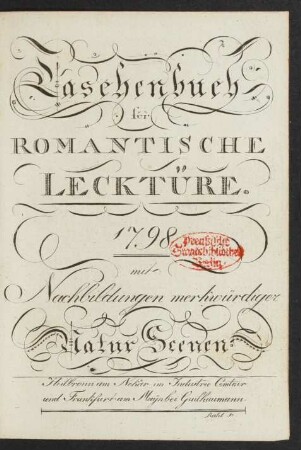 Taschenbuch
für
ROMANTISCHE
LECKTÜRE.
1798
Preußische
Staatsbibliothek
Berlin
mit
Nachbildungen merkwürdiger
Natur Scenen
Heilbronn am Nekar im Industrie Comtoir
und Frankfurt am Mayn bei Guilhaumann.